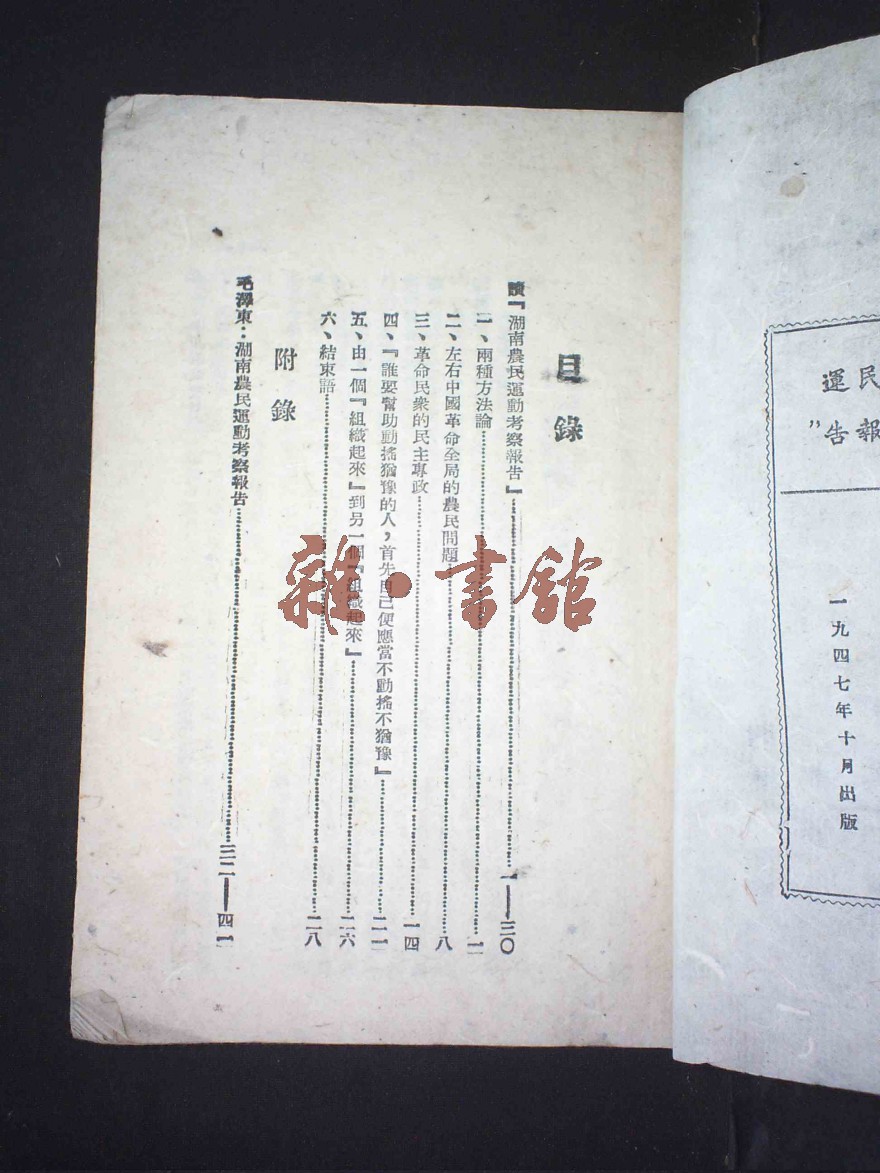 民
運
報
告”
一九四七年十月出版
目錄
讀『湖南農民運動考察報告』……一——三〇
一、兩種方法論……二
二、左右中國革命全局的農民問題……八
三、革命民衆的民主專政……一四
四、『誰要幫助動搖猶豫的人，首先自己便應當不動搖不猶豫』……二一
五、由一個『組織起來』到另一個『組織起來』……二六
六、結束語……二八
附錄
毛澤東：湖南農民運動考察報告……三二——四一
雜·書館